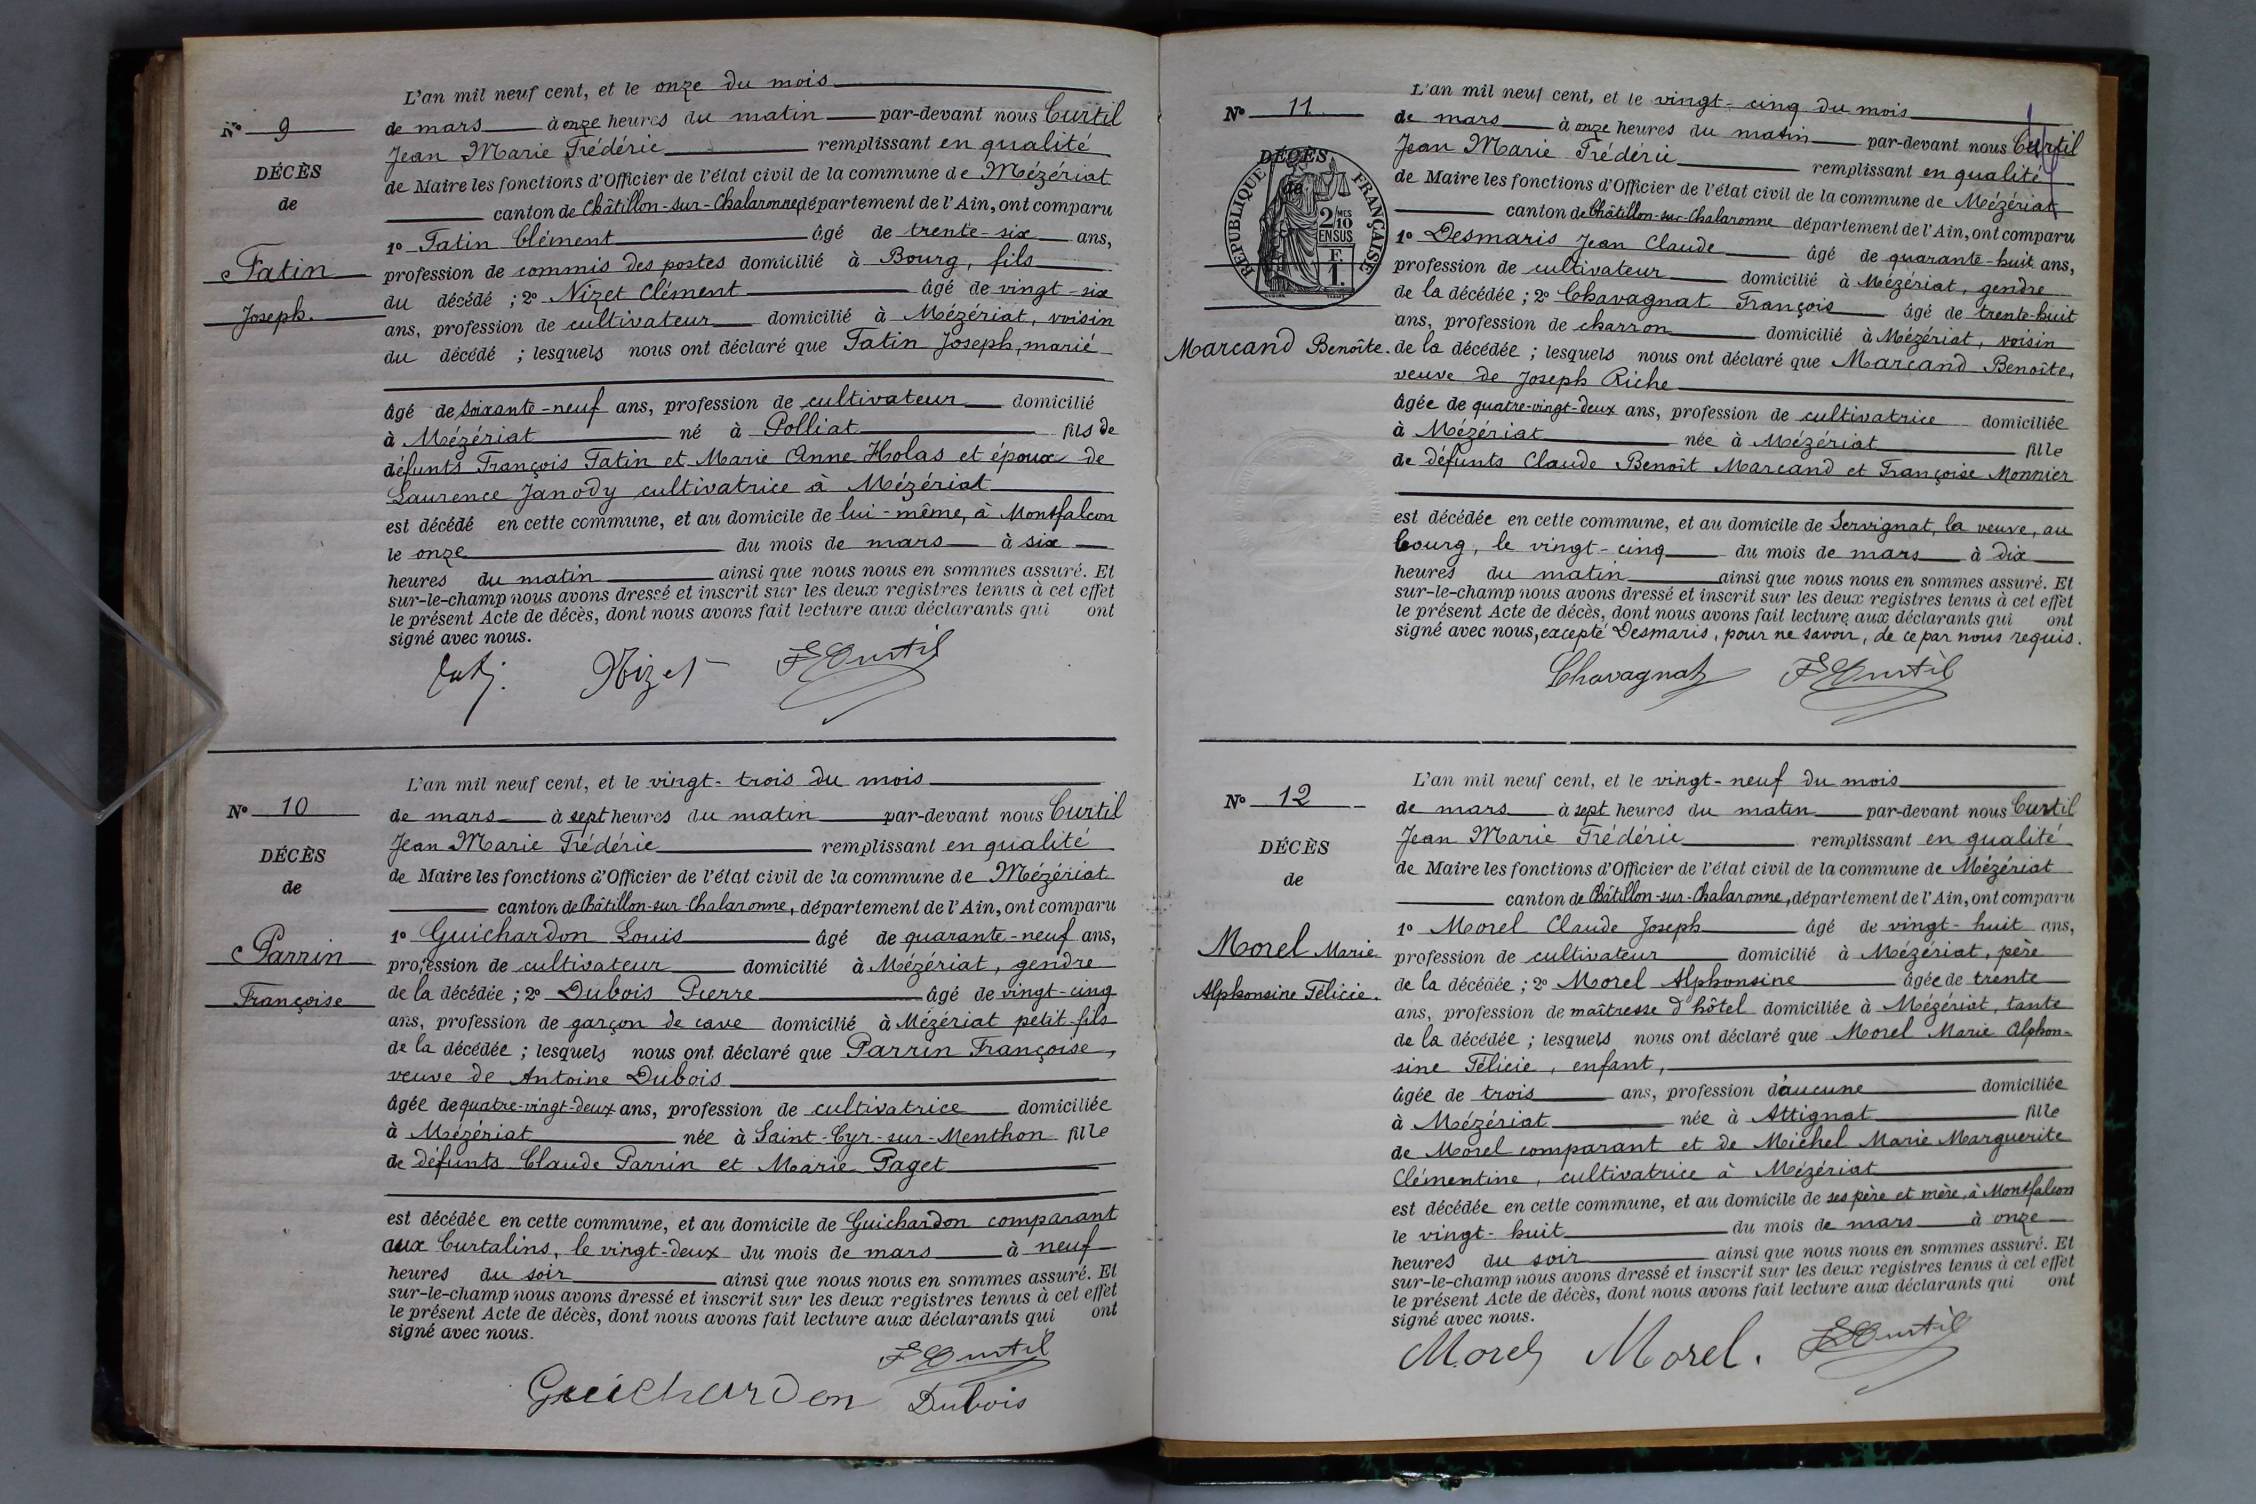 L'an mil neuf cent, et le onze du mois
N° 9
de mars à onze heures du matin par-devant nous Curtil
Jean Marie Frédéric remplissant en qualité
DÉCÈS
de Maire les fonctions d'Officier de l'état civil de la commune de Mézériat
de
canton de Châtillon-sur-Chalaronne, département de l'Ain, ont comparu
1° Tatin Clément âgé de trente-six ans,
Tatin
profession de commis des postes domicilié à Bourg, fils
du décédé ; 2° Nizet Clément âgé de vingt-six
Joseph.
ans, profession de cultivateur domicilié à Mézériat, voisin
du décédé ; lesquels nous ont déclaré que Tatin Joseph, marié
âgé de soixante-neuf ans, profession de cultivateur domicilié
à Mézériat né à Polliat fils de
défunts François Tatin et Marie Anne Holas et époux de
Laurence Janody cultivatrice à Mézériat
est décédé en cette commune, et au domicile de lui-même, à Montfalcon
le onze du mois de mars à six
heures du matin ainsi que nous nous en sommes assuré. Et
sur-le-champ nous avons dressé et inscrit sur les deux registres tenus à cet effet
le présent Acte de décès, dont nous avons fait lecture aux déclarants qui ont
signé avec nous.
Nizet FCurtil
L'an mil neuf cent, et le vingt-trois du mois
N° 10
de mars à sept heures du matin par-devant nous Curtil
Jean Marie Frédéric remplissant en qualité
DÉCÈS
de Maire les fonctions d'Officier de l'état civil de la commune de Mézériat
de
canton de Châtillon-sur-Chalaronne, département de l'Ain, ont comparu
1° Guichardon Louis âgé de quarante-neuf ans,
Parrin
profession de cultivateur domicilié à Mézériat, gendre
Françoise
de la décédée ; 2° Dubois Pierre âgé de vingt-cinq
ans, profession de garçon de cave domicilié à Mézériat petit-fils
de la décédée ; lesquels nous ont déclaré que Parrin Françoise,
veuve de Antoine Dubois
âgée de quatre-vingt-deux ans, profession de cultivatrice domiciliée
à Mézériat née à Saint-Cyr-sur-Menthon fille
de défunts Claude Parrin et Marie Paget
est décédée en cette commune, et au domicile de Guichardon comparant
aux Curtalins, le vingt-deux du mois de mars à neuf
heures du soir ainsi que nous nous en sommes assuré. Et
sur-le-champ nous avons dressé et inscrit sur les deux registres tenus à cet effet
le présent Acte de décès, dont nous avons fait lecture aux déclarants qui ont
signé avec nous.
FCurtil
Guichardon Dubois
L'an mil neuf cent, et le vingt-cinq du mois
N° 11
de mars à onze heures du matin par-devant nous Curtil
Jean Marie Frédéric remplissant en qualité
DÉCÈS
de Maire les fonctions d'Officier de l'état civil de la commune de Mézériat
de
RÉPUBLIQUE FRANÇAISE
2 MES
10
EN SUS
F.
1.
canton de Châtillon-sur-Chalaronne département de l'Ain, ont comparu
1° Desmaris Jean Claude âgé de quarante-huit ans,
profession de cultivateur domicilié à Mézériat, gendre
de la décédée ; 2° Chavagnat François âgé de trente-huit
ans, profession de charron domicilié à Mézériat, voisin
Marcand Benoîte.
de la décédée ; lesquels nous ont déclaré que Marcand Benoîte,
veuve de Joseph Riche
âgée de quatre-vingt-deux ans, profession de cultivatrice domiciliée
à Mézériat née à Mézériat fille
de défunts Claude Benoît Marcand et Françoise Monnier
est décédée en cette commune, et au domicile de Servignat, la veuve, au
bourg, le vingt-cinq du mois de mars à dix
heures du matin ainsi que nous nous en sommes assuré. Et
sur-le-champ nous avons dressé et inscrit sur les deux registres tenus à cet effet
le présent Acte de décès, dont nous avons fait lecture aux déclarants qui ont
signé avec nous, excepté Desmaris, pour ne savoir, de ce par nous requis.
Chavagnat FCurtil
L'an mil neuf cent, et le vingt-neuf du mois
N° 12
de mars à sept heures du matin par-devant nous Curtil
Jean Marie Frédéric remplissant en qualité
DÉCÈS
de Maire les fonctions d'Officier de l'état civil de la commune de Mézériat
de
canton de Châtillon-sur-Chalaronne, département de l'Ain, ont comparu
1° Morel Claude Joseph âgé de vingt-huit ans,
Morel Marie
profession de cultivateur domicilié à Mézériat, père
Alphonsine Félicie.
de la décédée ; 2° Morel Alphonsine âgée de trente
ans, profession de maîtresse d'hôtel domiciliée à Mézériat, tante
de la décédée ; lesquels nous ont déclaré que Morel Marie Alphon-
sine Félicie, enfant,
âgée de trois ans, profession d'aucune domiciliée
à Mézériat née à Attignat fille
de Morel comparant et de Michel Marie Marguerite
Clémentine, cultivatrice à Mézériat
est décédée en cette commune, et au domicile de ses père et mère, à Montfalcon
le vingt-huit du mois de mars à onze
heures du soir ainsi que nous nous en sommes assuré. Et
sur-le-champ nous avons dressé et inscrit sur les deux registres tenus à cet effet
le présent Acte de décès, dont nous avons fait lecture aux déclarants qui ont
signé avec nous.
Morel Morel. FCurtil